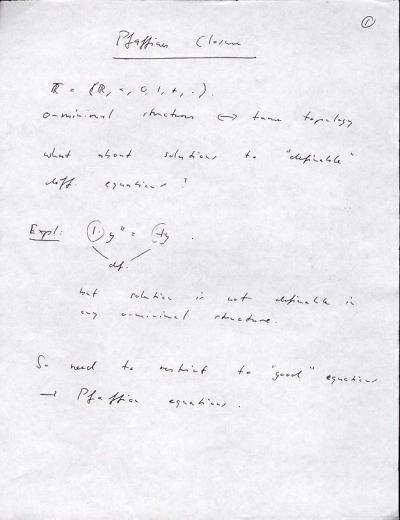 ①
Pfaffian Closure
ℝ = (ℝ, <, 0, 1, +, ·).
o-minimal structures ⟷ tame topology
what about solutions to "definable"
diff. equations?
Expl: 1·y'' = -y.
def.
but solution is not definable in
any o-minimal structure.
So need to restrict to "good" equations
→ Pfaffian equations.